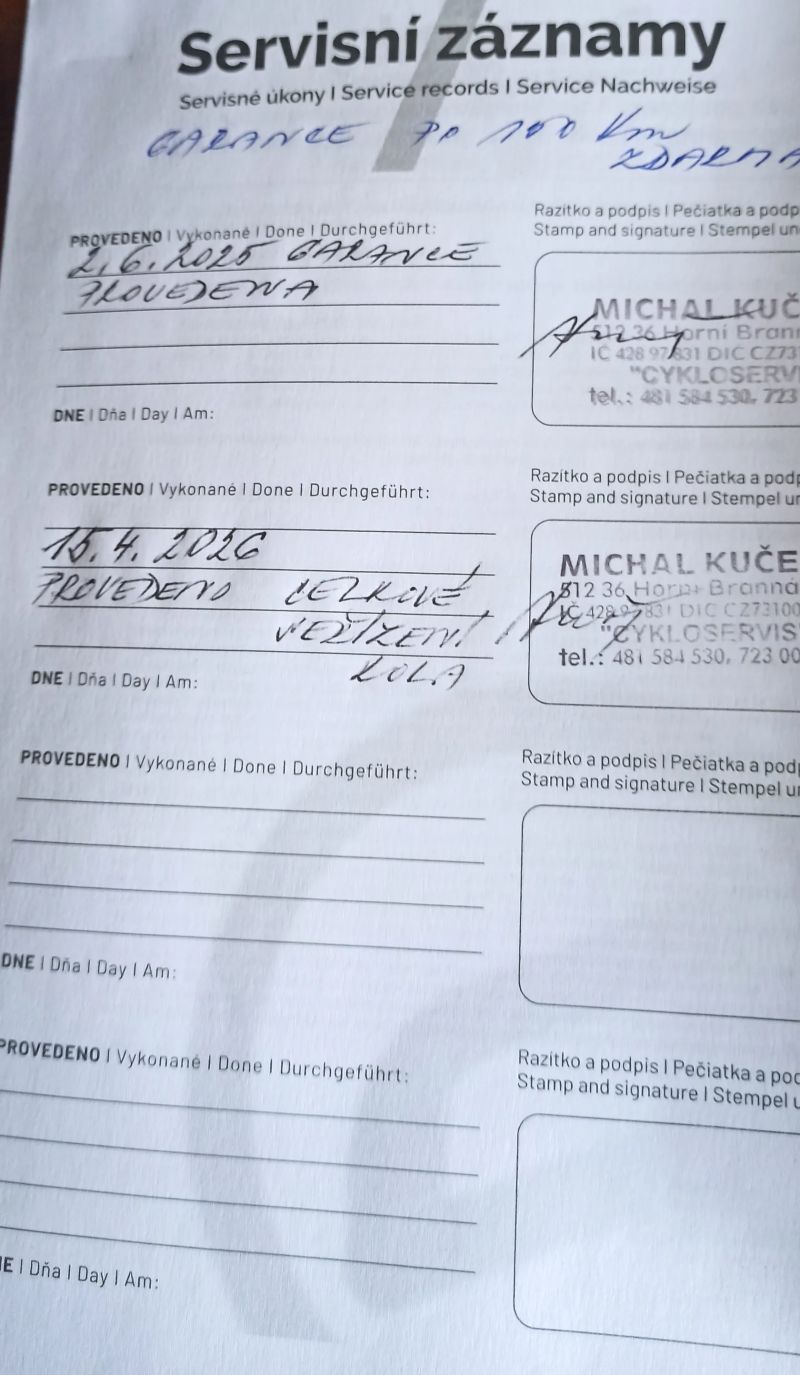 Servisní záznamy
Servisné úkony | Service records | Service Nachweise
GARANCE PO 100 Km
ZDARMA
PROVEDENO | Vykonané | Done | Durchgeführt:
2.6.2025 GARANCE
PROVEDENA
DNE | Dňa | Day | Am:
Razítko a podpis | Pečiatka a podp
Stamp and signature | Stempel un
MICHAL KUČ
512 36 Horní Brann
IČ 428 97 831 DIC CZ731
"CYKLOSERVI
tel.: 481 584 530, 723
PROVEDENO | Vykonané | Done | Durchgeführt:
15.4. 2026
PROVEDENO CELKOVÉ
SEŘÍZENÍ
KOLA
DNE | Dňa | Day | Am:
Razítko a podpis | Pečiatka a podp
Stamp and signature | Stempel ur
MICHAL KUČE
512 36 Horní Branná
IČ 428 97 831 DIC CZ73100
"CYKLOSERVIS
tel.: 481 584 530, 723 00
PROVEDENO | Vykonané | Done | Durchgeführt:
DNE | Dňa | Day | Am:
Razítko a podpis | Pečiatka a podp
Stamp and signature | Stempel ur
PROVEDENO | Vykonané | Done | Durchgeführt:
NE | Dňa | Day | Am:
Razítko a podpis | Pečiatka a poc
Stamp and signature | Stempel u